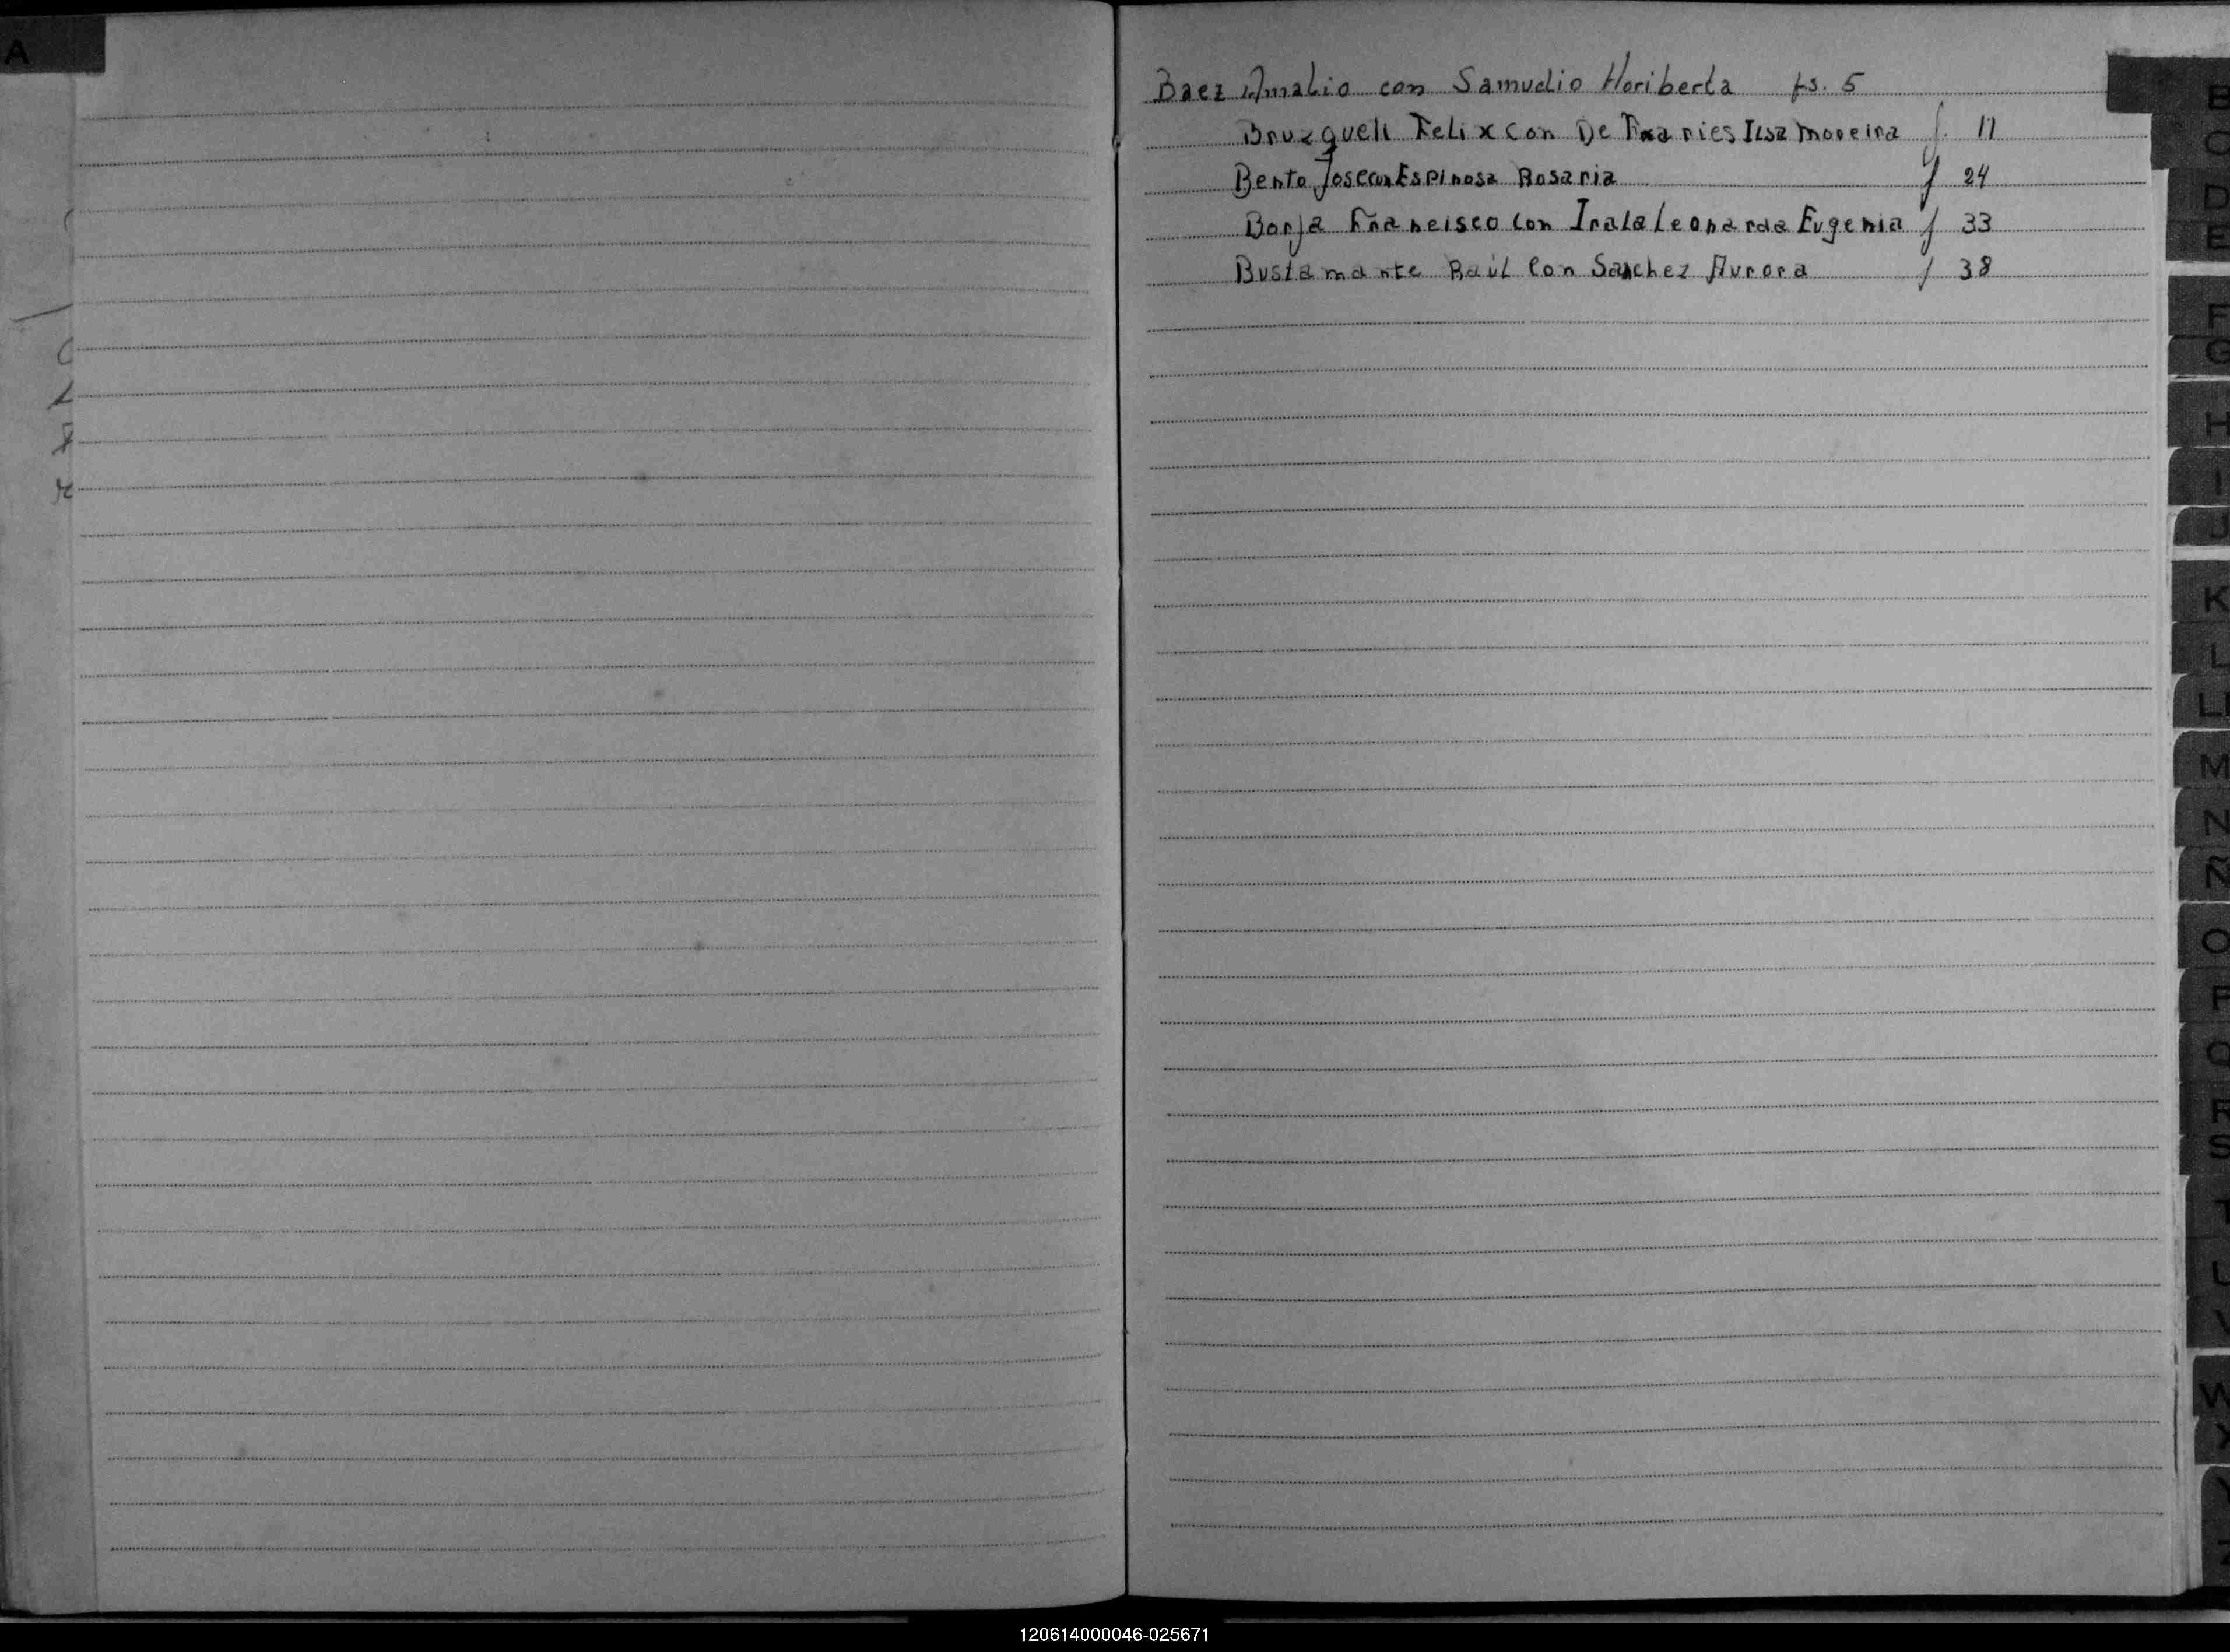 A
Baez Amalio con Samudio Heriberta fs. 5
Bruzqueli Felix con De Ilsa Moreira f. 11
Bento Jose con Espinosa Rosaria f 24
Borja Francisco con Irala Leonarda Eugenia f 33
Bustamante Raúl con Sanchez Aurora f 38
B
C
D
E
F
G
H
I
J
K
L
LL
M
N
Ñ
O
P
Q
R
S
T
U
V
W
X
Y
120614000046-025671